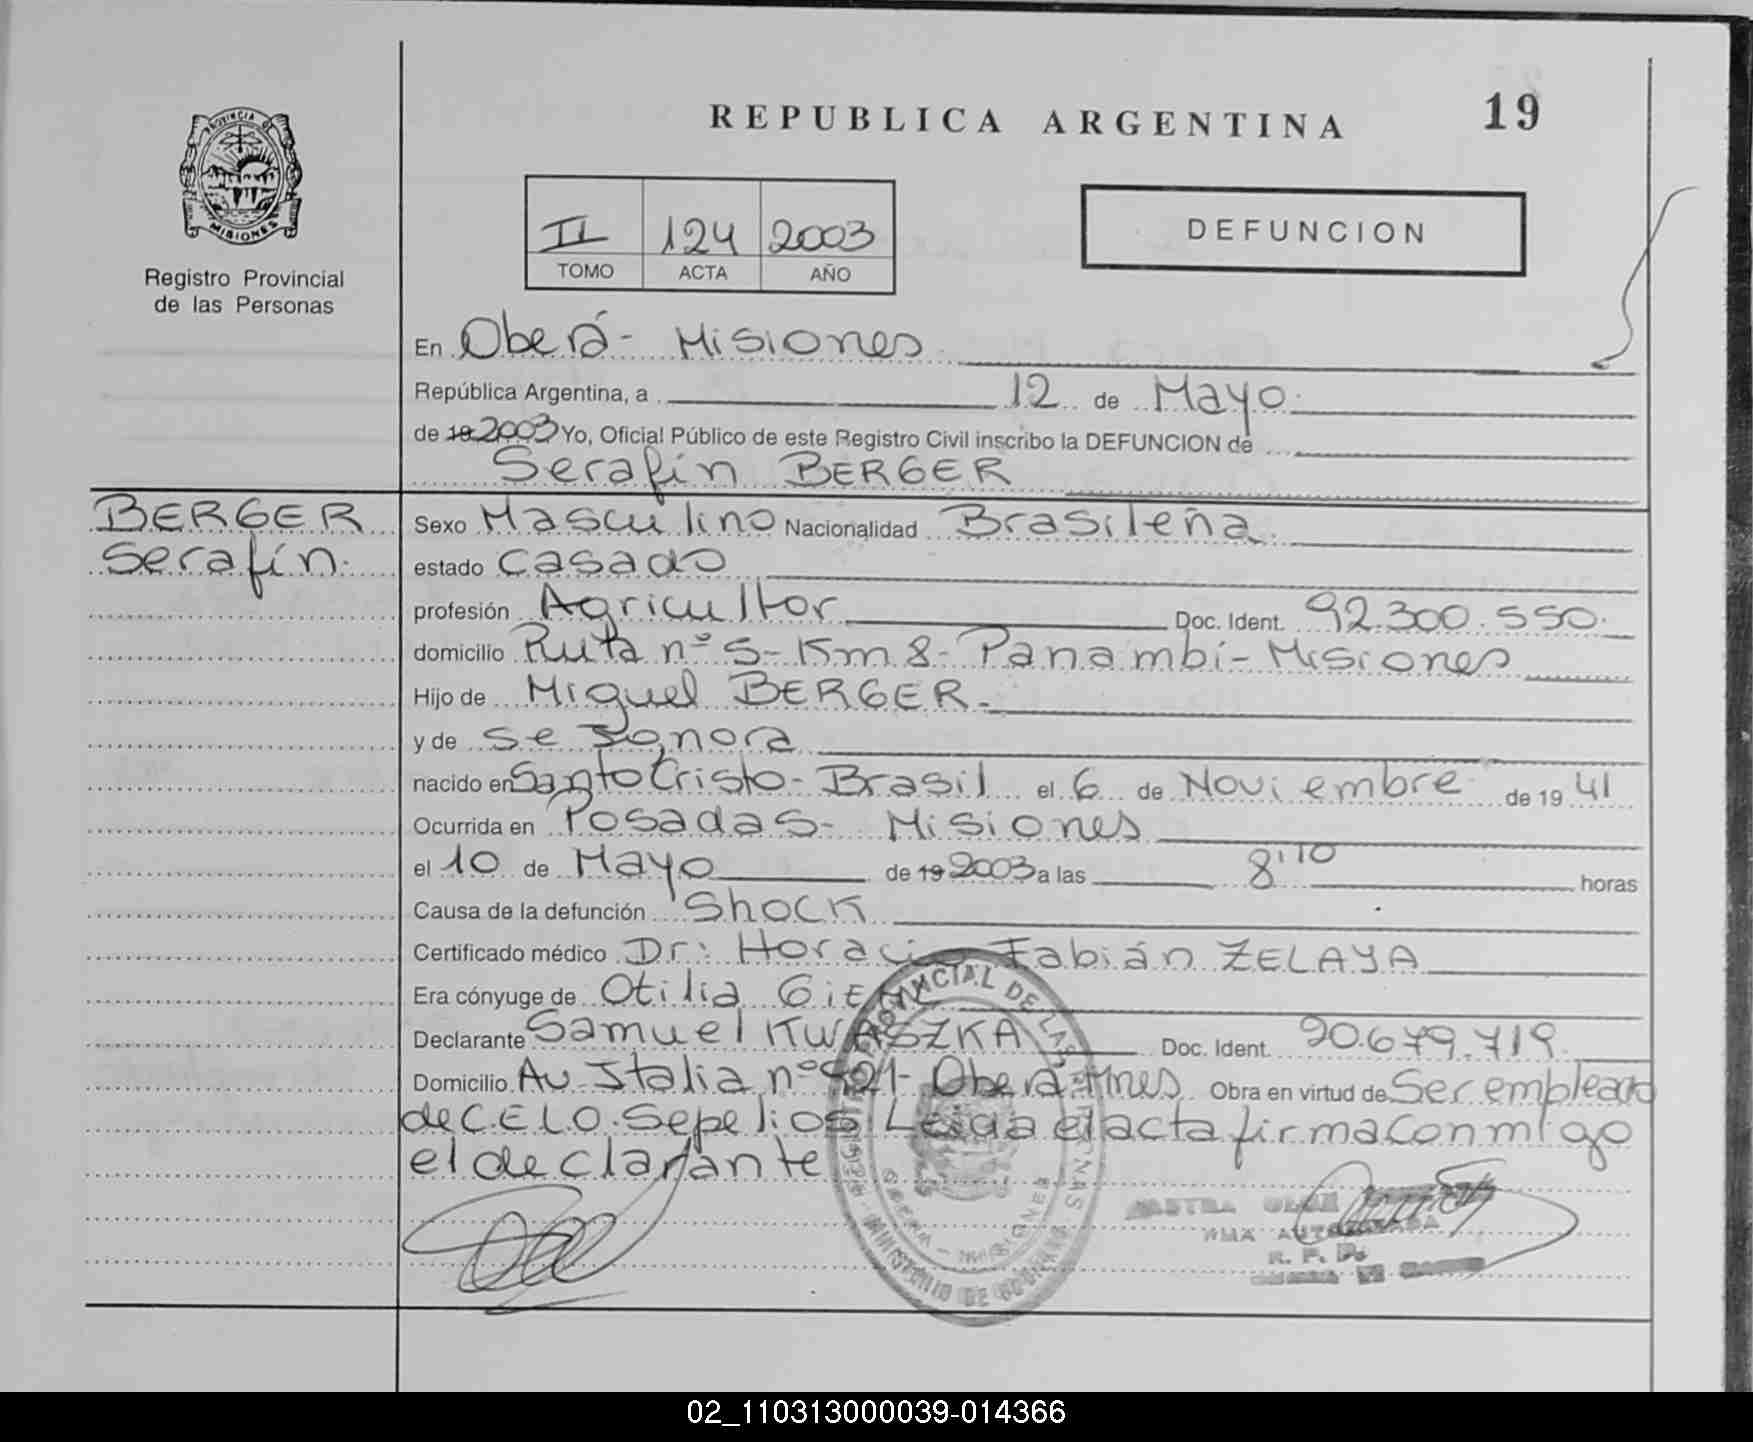 REPUBLICA ARGENTINA 19
PROVINCIA DE
MISIONES
Registro Provincial
de las Personas
II 124 2003
TOMO ACTA AÑO
DEFUNCION
En Oberá - Misiones
República Argentina, a 12 de Mayo
de 19 2003 Yo, Oficial Público de este Registro Civil inscribo la DEFUNCION de
Serafín BERGER
BERGER
Serafín.
Sexo Masculino Nacionalidad Brasileña
estado Casado
profesión Agricultor Doc. Ident. 92.300.550.
domicilio Ruta nº 5 - Km 8 - Panambí - Misiones
Hijo de Miguel BERGER.
y de se Ignora
nacido en Santo Cristo - Brasil el 6 de Noviembre de 19 41
Ocurrida en Posadas - Misiones
el 10 de Mayo de 19 2003 a las 8'10 horas
Causa de la defunción Shock
Certificado médico Dr: Horacio Fabián ZELAYA
Era cónyuge de Otilia GIEHL
Declarante Samuel KWASZKA Doc. Ident. 90.679.719.
Domicilio Av Italia nº 421 - Oberá Mnes Obra en virtud de Ser empleado
de CELO. Sepelios Leida el acta firma conmigo
el declarante
PROVINCIAL DE LAS
MINISTERIO DE GOBIERNO
R. P. P.
02_110313000039-014366